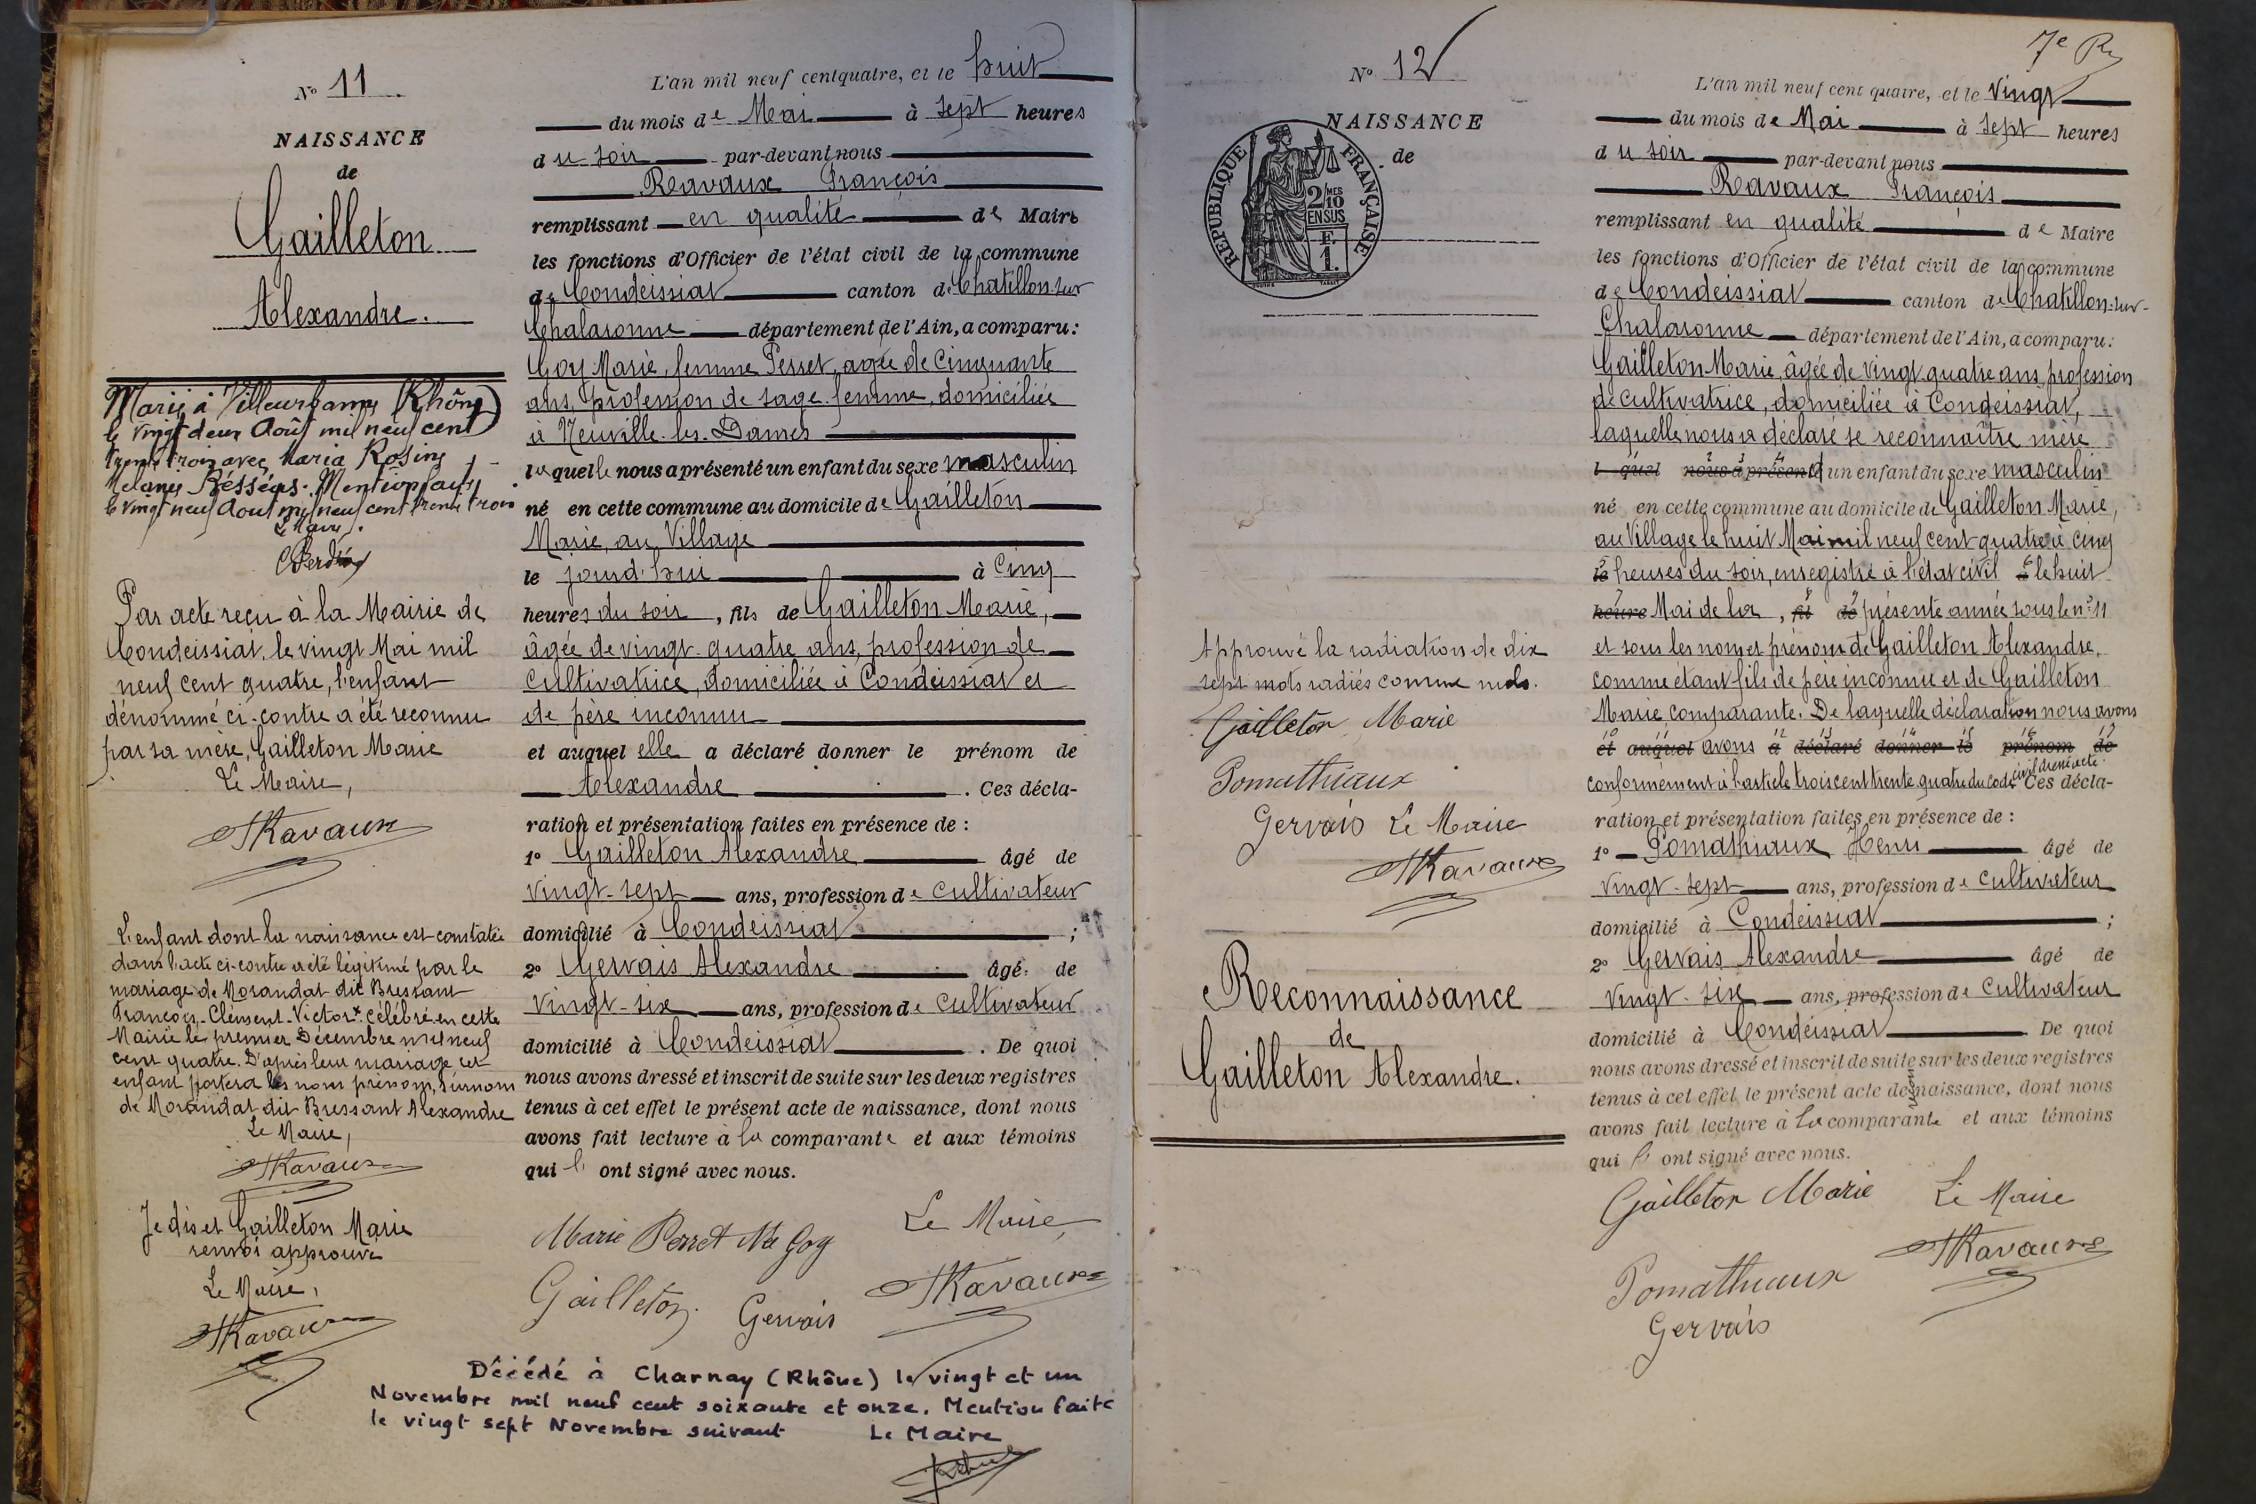 N° 11
NAISSANCE
de
Gailleton
Alexandre.
Marié à Villeurbanne (Rhône)
le vingt deux Août mil neuf cent
trente trois avec Maria Rosine
Mention faite
le vingt neuf Aout mil neuf cent trente trois
Le Maire.
Par acte reçu à la Mairie de
Condeissiat, le vingt Mai mil
neuf cent quatre, l'enfant
dénommé ci-contre a été reconnu
par sa mère, Gailleton Marie
Le Maire,
FRavaux
L'enfant dont la naissance est constatée
dans l'acte ci-contre a été légitimé par le
mariage de Morandat dit Bressant
François-Clément-Victor x célébré en cette
Mairie le premier Décembre mil neuf
cent quatre. D'après leur mariage cet
enfant portera les nom prénom, surnom
de Morandat dit Bressant Alexandre
Le Maire,
FRavaux
Je dis et Gailleton Marie
renvoi approuvé
Le Maire,
FRavaux
L'an mil neuf cent quatre, et le huit
du mois de Mai à sept heures
du soir par-devant nous
Ravaux François
remplissant en qualité de Maire
les fonctions d'Officier de l'état civil de la commune
de Condeissiat canton de Chatillon-sur
Chalaronne département de l'Ain, a comparu :
Goy Marie, femme Perret, agée de Cinquante
ans, profession de sage-femme, domiciliée
à Neuville-les-Dames
laquelle nous a présenté un enfant du sexe masculin
né en cette commune au domicile de Gailleton
Marie, au Village
le jourd'hui à Cinq
heures du soir, fils de Gailleton Marie,
âgée de vingt-quatre ans, profession de
Cultivatrice, domiciliée à Condeissiat et
de père inconnu
et auquel elle a déclaré donner le prénom de
Alexandre . Ces décla-
ration et présentation faites en présence de :
1° Gailleton Alexandre âgé de
vingt-sept ans, profession de cultivateur
domicilié à Condeissiat ;
2° Gervais Alexandre âgé de
vingt-six ans, profession de cultivateur
domicilié à Condeissiat . De quoi
nous avons dressé et inscrit de suite sur les deux registres
tenus à cet effet le présent acte de naissance, dont nous
avons fait lecture à la comparante et aux témoins
qui l' ont signé avec nous.
Marie Perret Née Goy
Le Maire,
Gailleton. Gervais FRavaux
Décédé à Charnay (Rhône) le vingt et un
Novembre mil neuf cent soixante et onze. Mention faite
le vingt sept Novembre suivant Le Maire
7e Rt
N° 12
NAISSANCE
de
RÉPUBLIQUE FRANÇAISE
2/10 MES
EN SUS
F.
1.
Approuvé la radiation de dix
sept mots radiés comme nuls.
Gailleton Marie
Pomathiaux
Gervais Le Maire
FRavaux
Reconnaissance
de
Gailleton Alexandre.
L'an mil neuf cent quatre, et le vingt
du mois de Mai à sept heures
du soir par-devant nous
Ravaux François
remplissant en qualité de Maire
les fonctions d'Officier de l'état civil de la commune
de Condeissiat canton de Chatillon-sur-
Chalaronne département de l'Ain, a comparu :
Gailleton Marie, âgée de vingt quatre ans, profession
de cultivatrice, domiciliée à Condeissiat,
laquelle nous a déclaré se reconnaître mère
l quel nous a présenté d'un enfant du sexe masculin
né en cette commune au domicile de Gailleton Marie,
au Village le huit Mai mil neuf cent quatre à cinq
le heures du soir, enregistré à l'état civil à le huit
heure Mai de la , fil de présente année sous le n° 11
et sous les nom et prénom de Gailleton Alexandre,
comme étant fils de père inconnu et de Gailleton
Marie comparante. De laquelle déclaration nous avons
et auquel avons a déclaré donner le prénom de
conformément à l'article trois cent trente quatre du code civil dressé acte. Ces décla-
ration et présentation faites en présence de :
1° Pomathiaux Henri âgé de
vingt-sept ans, profession de cultivateur
domicilié à Condeissiat ;
2° Gervais Alexandre âgé de
vingt-six ans, profession de cultivateur
domicilié à Condeissiat . De quoi
nous avons dressé et inscrit de suite sur les deux registres
tenus à cet effet le présent acte de naissance, dont nous
avons fait lecture à la comparante et aux témoins
qui l' ont signé avec nous.
Gailleton Marie Le Maire
FRavaux
Pomathiaux
Gervais